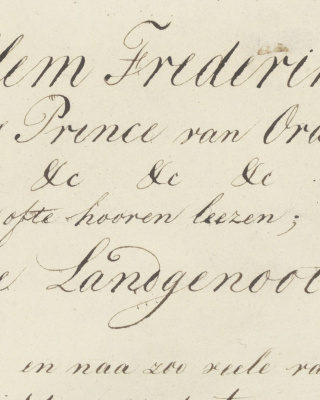 llem Frederi
Prince van Ora
&c &c &c
ofte hooren leezen;
e Landgenoot
en naa zoo veele ra